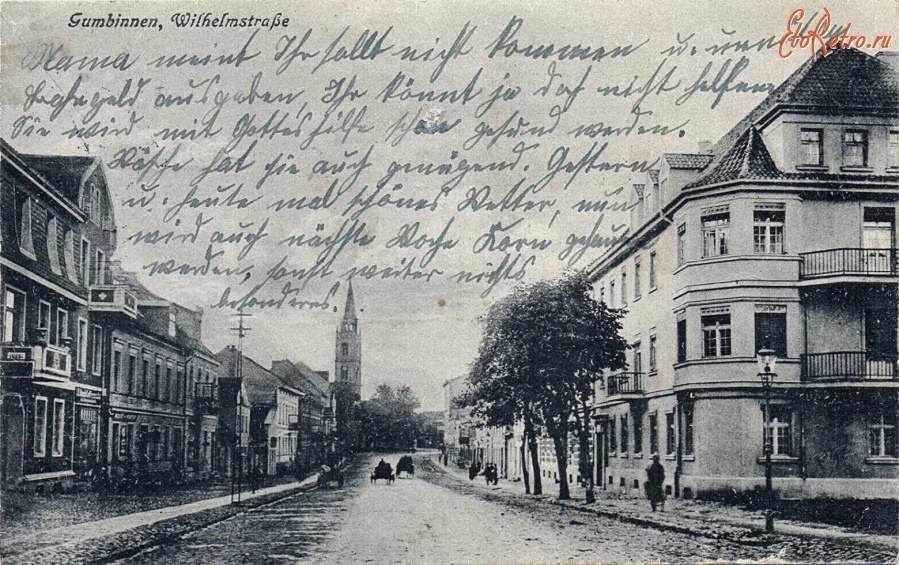 Gumbinnen, Wilhelmstraße
EtoRetro.ru
Mama meint Ihr sollt nicht kommen u. unnütz
geld ausgeben, Ihr könnt ja doch nicht helfen
Sie wird mit Gottes hilfe schon gesund werden.
Wäsche hat sie auch genügend. Gestern
u. heute mal schönes Wetter, nun
wird auch nächste Woche Korn gehauen
werden, sonst weiter nichts
besonderes.